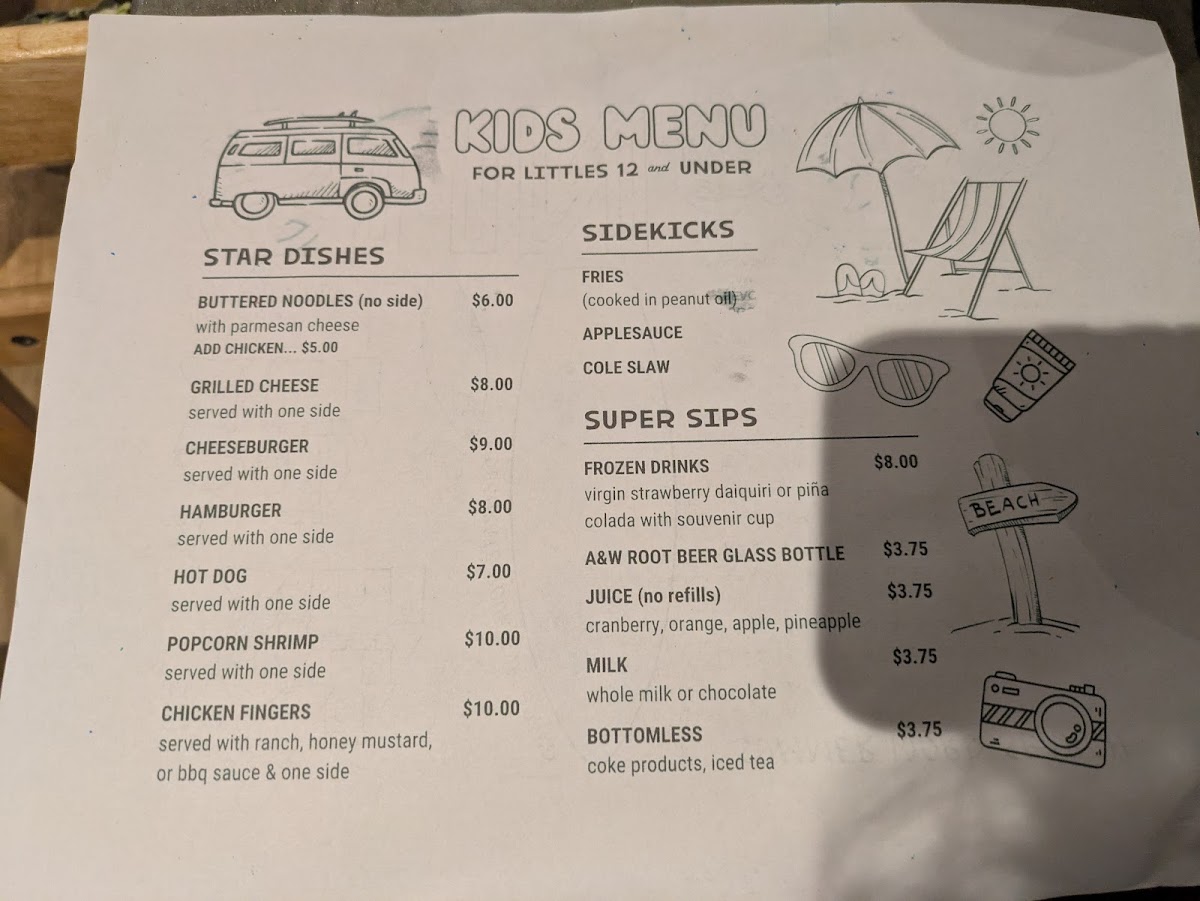 KIDS MENU
FOR LITTLES 12 and UNDER
STAR DISHES
BUTTERED NOODLES (no side) $6.00
with parmesan cheese
ADD CHICKEN... $5.00
GRILLED CHEESE $8.00
served with one side
CHEESEBURGER $9.00
served with one side
HAMBURGER $8.00
served with one side
HOT DOG $7.00
served with one side
POPCORN SHRIMP $10.00
served with one side
CHICKEN FINGERS $10.00
served with ranch, honey mustard,
or bbq sauce & one side
SIDEKICKS
FRIES
(cooked in peanut oil)
APPLESAUCE
COLE SLAW
SUPER SIPS
FROZEN DRINKS $8.00
virgin strawberry daiquiri or piña
colada with souvenir cup
A&W ROOT BEER GLASS BOTTLE $3.75
JUICE (no refills) $3.75
cranberry, orange, apple, pineapple
MILK $3.75
whole milk or chocolate
BOTTOMLESS $3.75
coke products, iced tea
BEACH